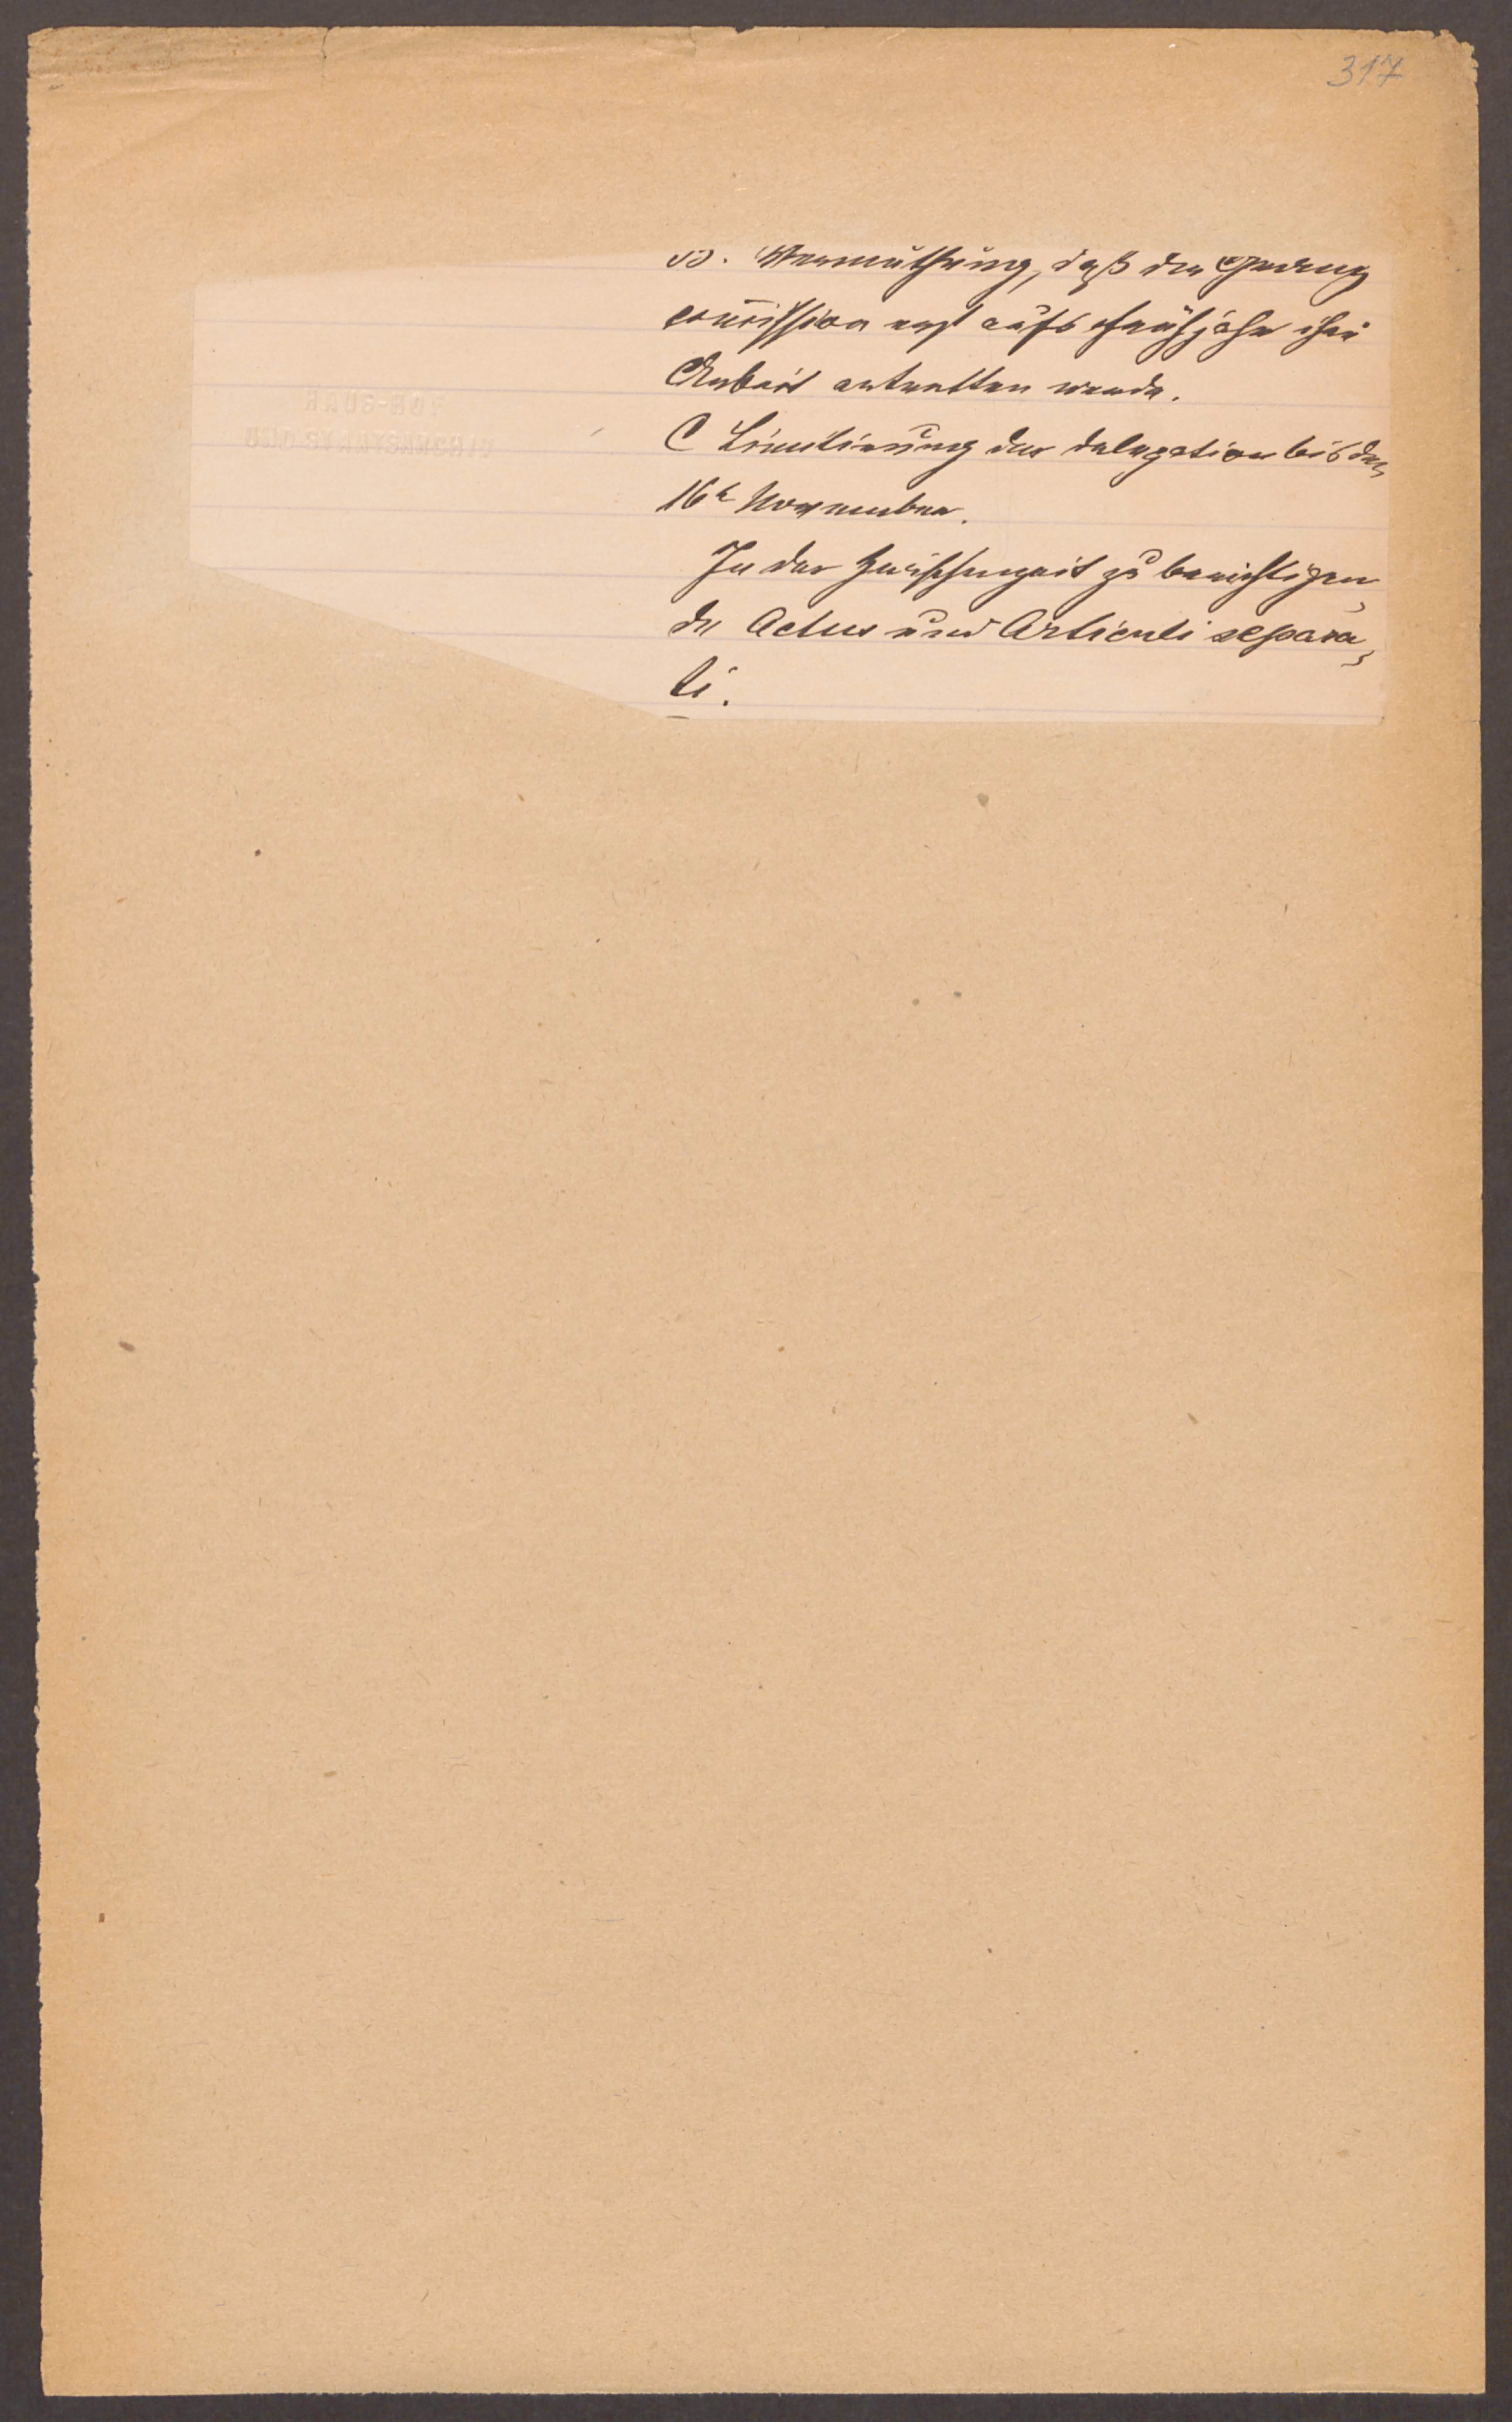 317
B. Vermuthung, daß die Grenz
com̅ission erst aufs Frühjahr ihre
Arbeit antretten werde.
C Limitirung der Delegation bis den
16t November.
In der Zwischenzeit zu berichtigen„
de Actus und Articuli separa„
ti.